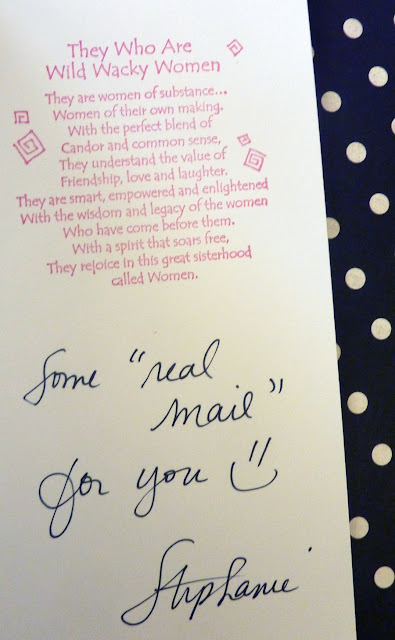 They Who Are
Wild Wacky Women
They are women of substance...
Women of their own making.
With the perfect blend of
Candor and common sense,
They understand the value of
Friendship, love and laughter.
They are smart, empowered and enlightened
With the wisdom and legacy of the women
Who have come before them.
With a spirit that soars free,
They rejoice in this great sisterhood
called Women.
Some "real
mail"
for you
Stephanie